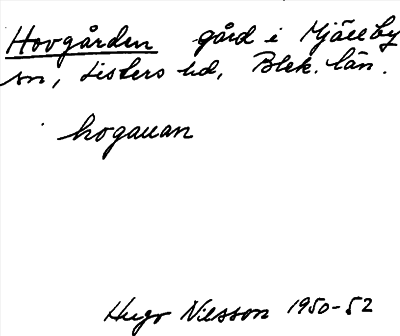 Hovgården gård i Mjällby
sn, Listers hd, Blek. län.
hogauan
Hugo Nilsson 1950-52